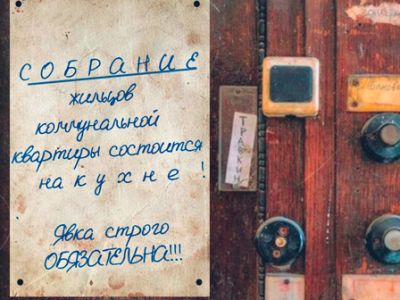 СОБРАНИЕ
жильцов
коммунальной
квартиры состоится
на кухне !
Явка строго
ОБЯЗАТЕЛЬНА!!!
ТРАВКИН